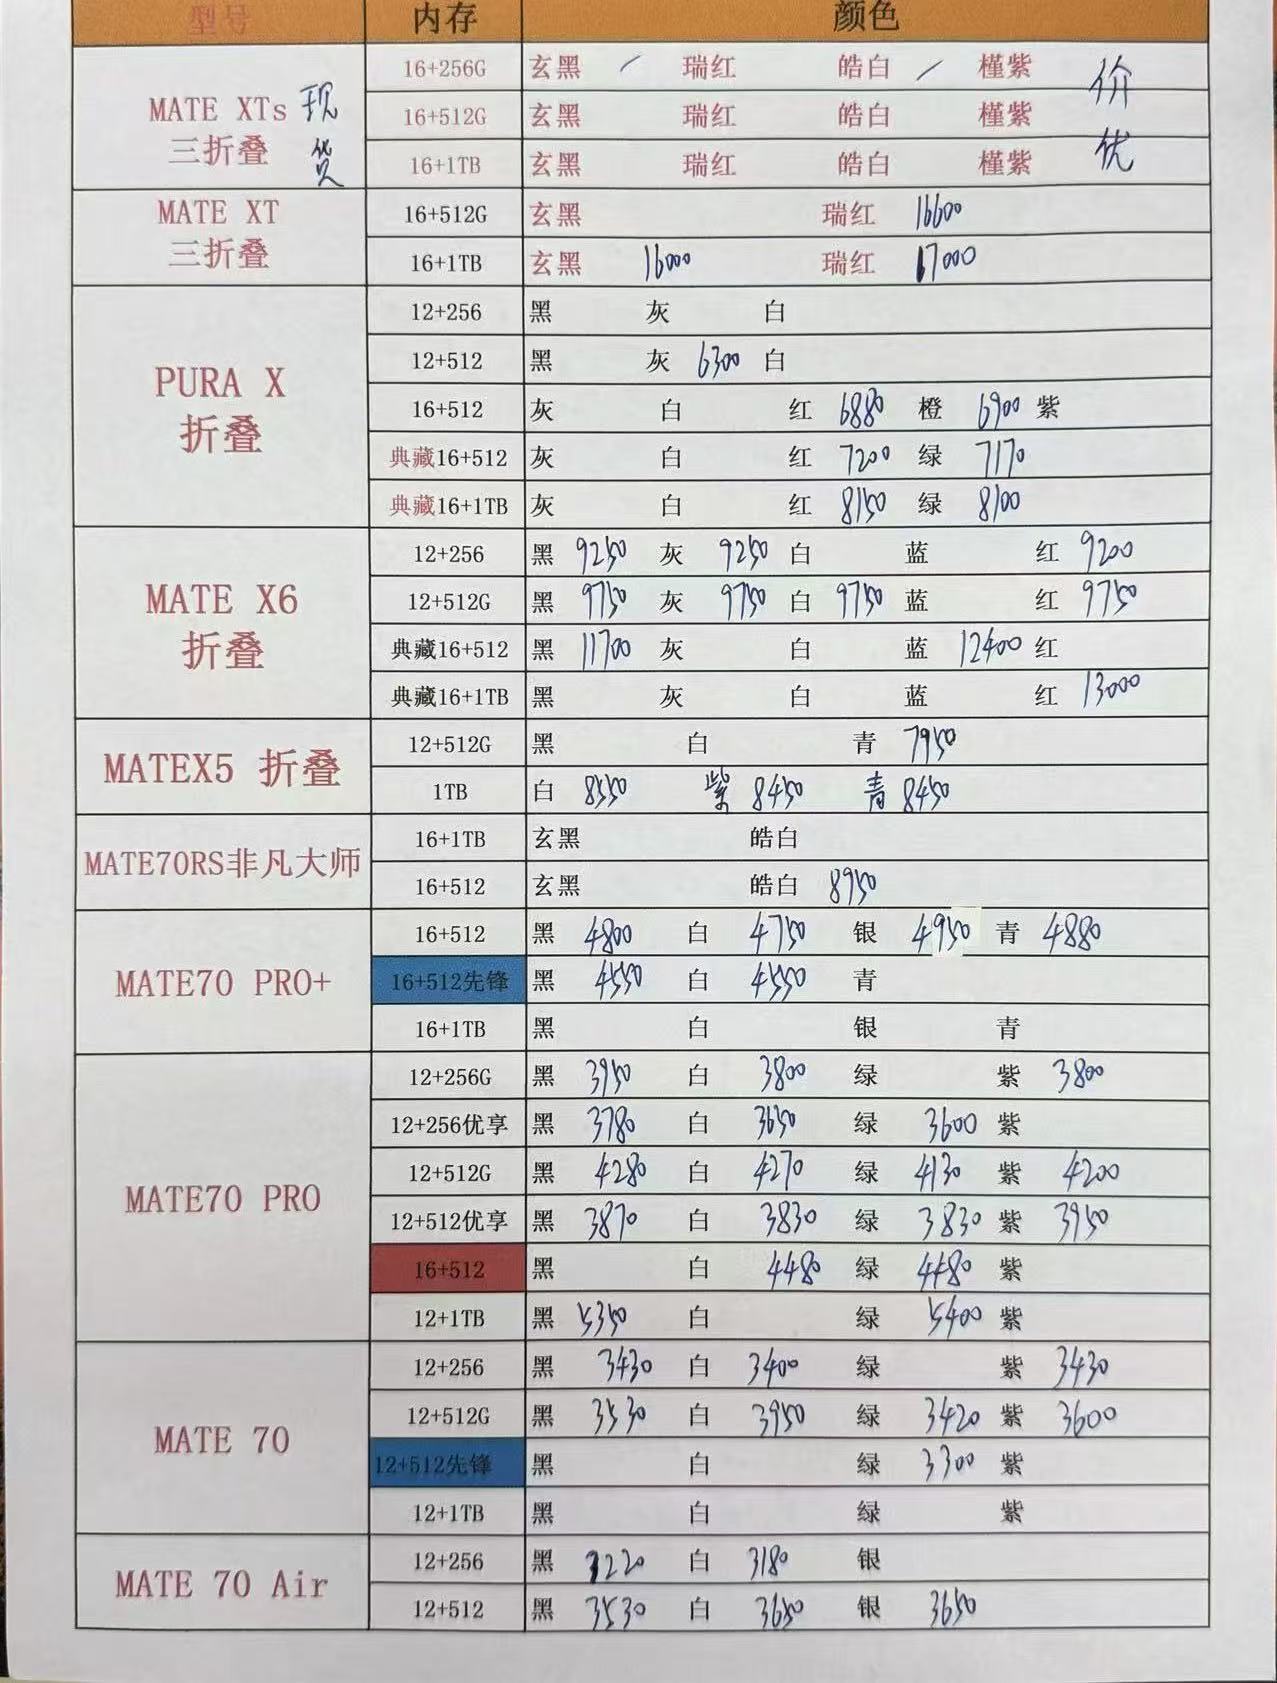 型号 内存 颜色
MATE XTs 三折叠 现货
16+256G 玄黑 / 瑞红 皓白 / 槿紫 价优
16+512G 玄黑 瑞红 皓白 槿紫
16+1TB 玄黑 瑞红 皓白 槿紫
MATE XT 三折叠
16+512G 玄黑 瑞红 16600
16+1TB 玄黑 16000 瑞红 17000
PURA X 折叠
12+256 黑 灰 白
12+512 黑 灰 6300 白
16+512 灰 白 红 6880 橙 6900 紫
典藏16+512 灰 白 红 7200 绿 7170
典藏16+1TB 灰 白 红 8150 绿 8100
MATE X6 折叠
12+256 黑 9250 灰 9250 白 蓝 红 9200
12+512G 黑 9750 灰 9750 白 9750 蓝 红 9750
典藏16+512 黑 11700 灰 白 蓝 12400 红
典藏16+1TB 黑 灰 白 蓝 红 13000
MATEX5 折叠
12+512G 黑 白 青 7950
1TB 白 8550 紫 8450 青 8450
MATE70RS非凡大师
16+1TB 玄黑 皓白
16+512 玄黑 皓白 8950
MATE70 PRO+
16+512 黑 4800 白 4750 银 4950 青 4880
16+512先锋 黑 4550 白 4550 青
16+1TB 黑 白 银 青
MATE70 PRO
12+256G 黑 3950 白 3800 绿 紫 3800
12+256优享 黑 3780 白 3650 绿 3600 紫
12+512G 黑 4280 白 4270 绿 4130 紫 4200
12+512优享 黑 3870 白 3830 绿 3830 紫 3950
16+512 黑 白 4480 绿 4480 紫
12+1TB 黑 5350 白 绿 5400 紫
MATE 70
12+256 黑 3430 白 3400 绿 紫 3430
12+512G 黑 3530 白 3950 绿 3420 紫 3600
12+512先锋 黑 白 绿 3300 紫
12+1TB 黑 白 绿 紫
MATE 70 Air
12+256 黑 3220 白 3180 银
12+512 黑 3530 白 3650 银 3650